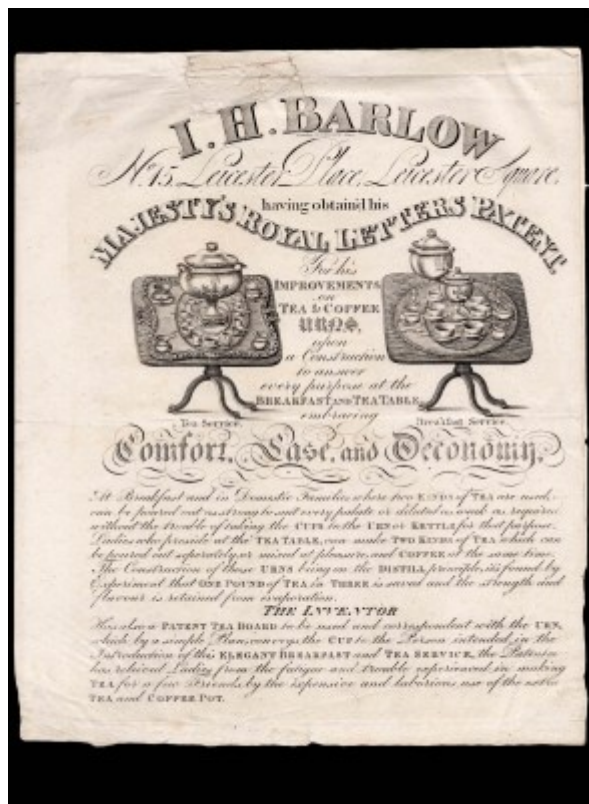 I. H. BARLOW
No. 15, Leicester Place, Leicester Square,
having obtain'd his
MAJESTY'S ROYAL LETTERS PATENT,
For his
IMPROVEMENTS
on
TEA & COFFEE
URNS,
upon
a Construction
to answer
every purpose at the
BREAKFAST AND TEA TABLE,
embracing
Tea Service.
Breakfast Service.
Comfort, Ease, and Oeconomy.
At Breakfast and in Domestic Families where two KINDS of TEA are used,
can be poured out as strong to suit every palate or diluted as weak as required
without the trouble of taking the CUPS to the URN or KETTLE for that purpose.
Ladies who preside at the TEA TABLE, can make TWO KINDS of TEA which can
be poured out seperately, or mixed at pleasure, and COFFEE at the same time.
The Construction of these URNS being on the DISTILL principle, it is found by
Experiment that ONE POUND of TEA in THREE is saved and the strength and
flavour is retained from evaporation.
THE INVENTOR
Has also a PATENT TEA BOARD to be used and correspondent with the URN,
which by a simple Plan conveys the CUP to the Person intended, in the
Introduction of this ELEGANT BREAKFAST and TEA SERVICE, the Patentee
has relieved Ladies from the fatigue and trouble experienced in making
TEA for a few Friends, by the expensive and laborious use of the
TEA and COFFEE POT.